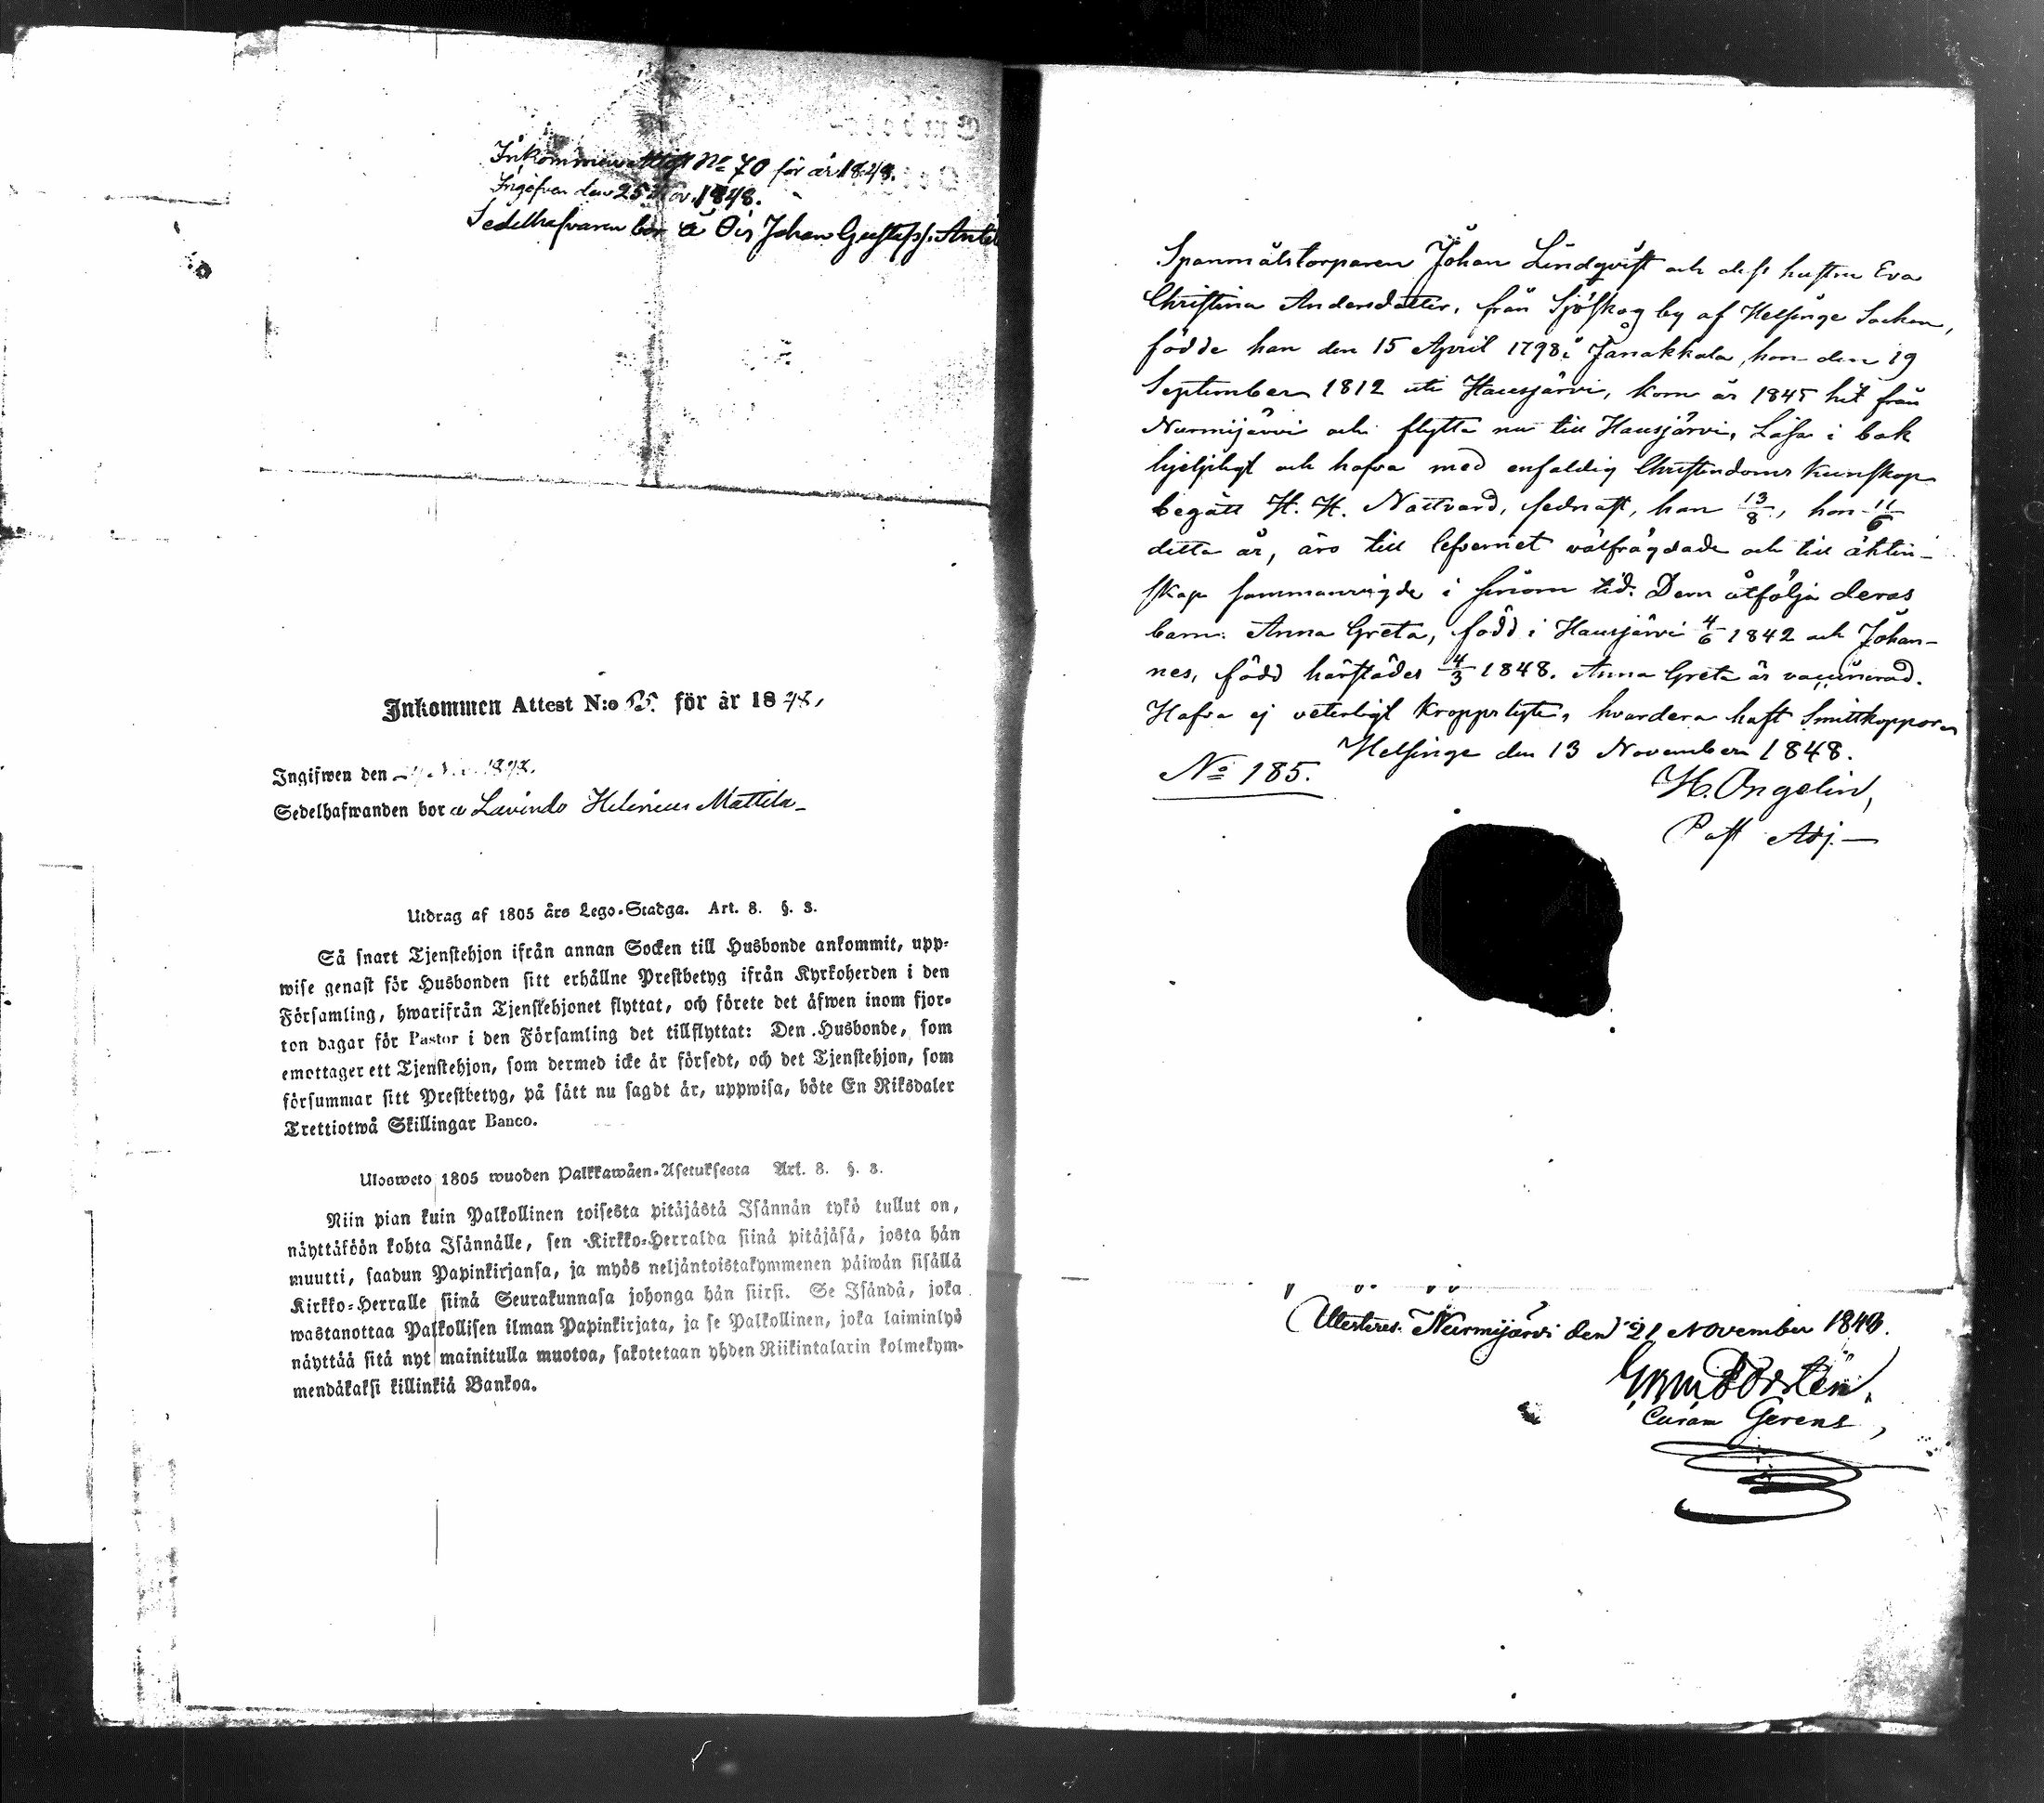 Inkommen Attest No 70 för år 1848.
Ingifven den 25 Nov. 1848.
Sedelhafvaren bor å Ois Johan Gustafss. Anti
Inkommen Attest N:o för år 1848,
Ingifwen den 1848.
Sedelhafwanden bor a Lavinto Helenius Mattila
Utdrag af 1805 års Lego-Stadga. Art. 8. §. 3.
Så snart Tjenstehjon ifrån annan Socken till Husbonde ankommit, upp-
wise genast för Husbonden sitt erhållne Prestbetyg ifrån Kyrkoherden i den
Församling, hwarifrån Tjenstehjonet flyttat, och förete det äfwen inom fjor-
ton dagar för Pastor i den Församling det tillflyttat: Den Husbonde, som
emottager ett Tjenstehjon, som dermed icke är försedt, och det Tjenstehjon, som
försummar sitt Prestbetyg, på sätt nu sagdt är, uppwisa, böte En Riksdaler
Trettiotwå Skillingar Banco.
Ulosweto 1805 wuoden Palkkawäen-Asetuksesta Art. 8. §. 3.
Niin pian kuin Palkollinen toisesta pitäjästä Isännän tykö tullut on,
näyttäköön kohta Isännälle, sen Kirkko-Herralda siinä pitäjäsä, josta hän
muutti, saadun Papinkirjansa, ja myös neljäntoistakymmenen päiwän sisällä
Kirkko-Herralle siinä Seurakunnasa johonga hän siirsi. Se Isändä, joka
wastanottaa Palkollisen ilman Papinkirjata, ja se Palkollinen, joka laiminlyö
näyttää sitä nyt mainitulla muotoa, sakotetaan yhden Riikintalarin kolmekym-
mendäkaksi killinkiä Bankoa.
Spanmålstorparen Johan Lindqvist och dess hustru Eva
Christina Andersdotter, från Sjöskog by af Helsinge Socken,
födde han den 15 April 1798 i Janakkala, hon den 19
September 1812 uti Hausjärvi, kom år 1845 hit från
Nurmijärvi och flytta nu till Hausjärvi, Läsa i bok
hjelpligt och hafva med enfaldig Christendoms kunskap
begått H. H. Nattvard, sednast, han 13/8, hon 11/6
detta år, äro till lefvernet välfrägdade och till äkten-
skap sammanvigde i sinom tid. Dem åtfölja deras
barn: Anna Greta, född i Hausjärvi 4/6 1842 och Johan-
nes, född härstädes 4/3 1848. Anna Greta är vaccinerad.
Hafva ej veterligt kroppslyte, hvardera haft Smittkopporna
Helsinge den 13 November 1848.
No 185.
H. Ongelin,
Past Adj.
Uesteres. Nurmijärvi den 21 November 1848.
Curam Gerens,